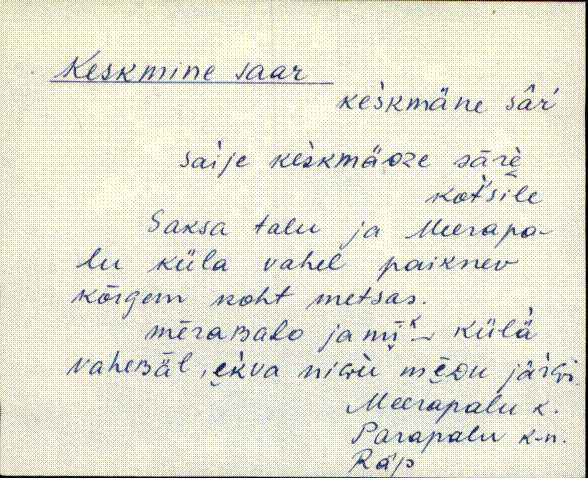 Keskmine saar
keskmäne sār
saije keskmäoze sārè
kot'sile
Saksa talu ja Meerapa-
lu küla vahel paiknev
kõrgem koht metsas.
mēraʙalo ja külä
vaheʙäl,
Meerapalu k.
Parapalu k-n.
Räp